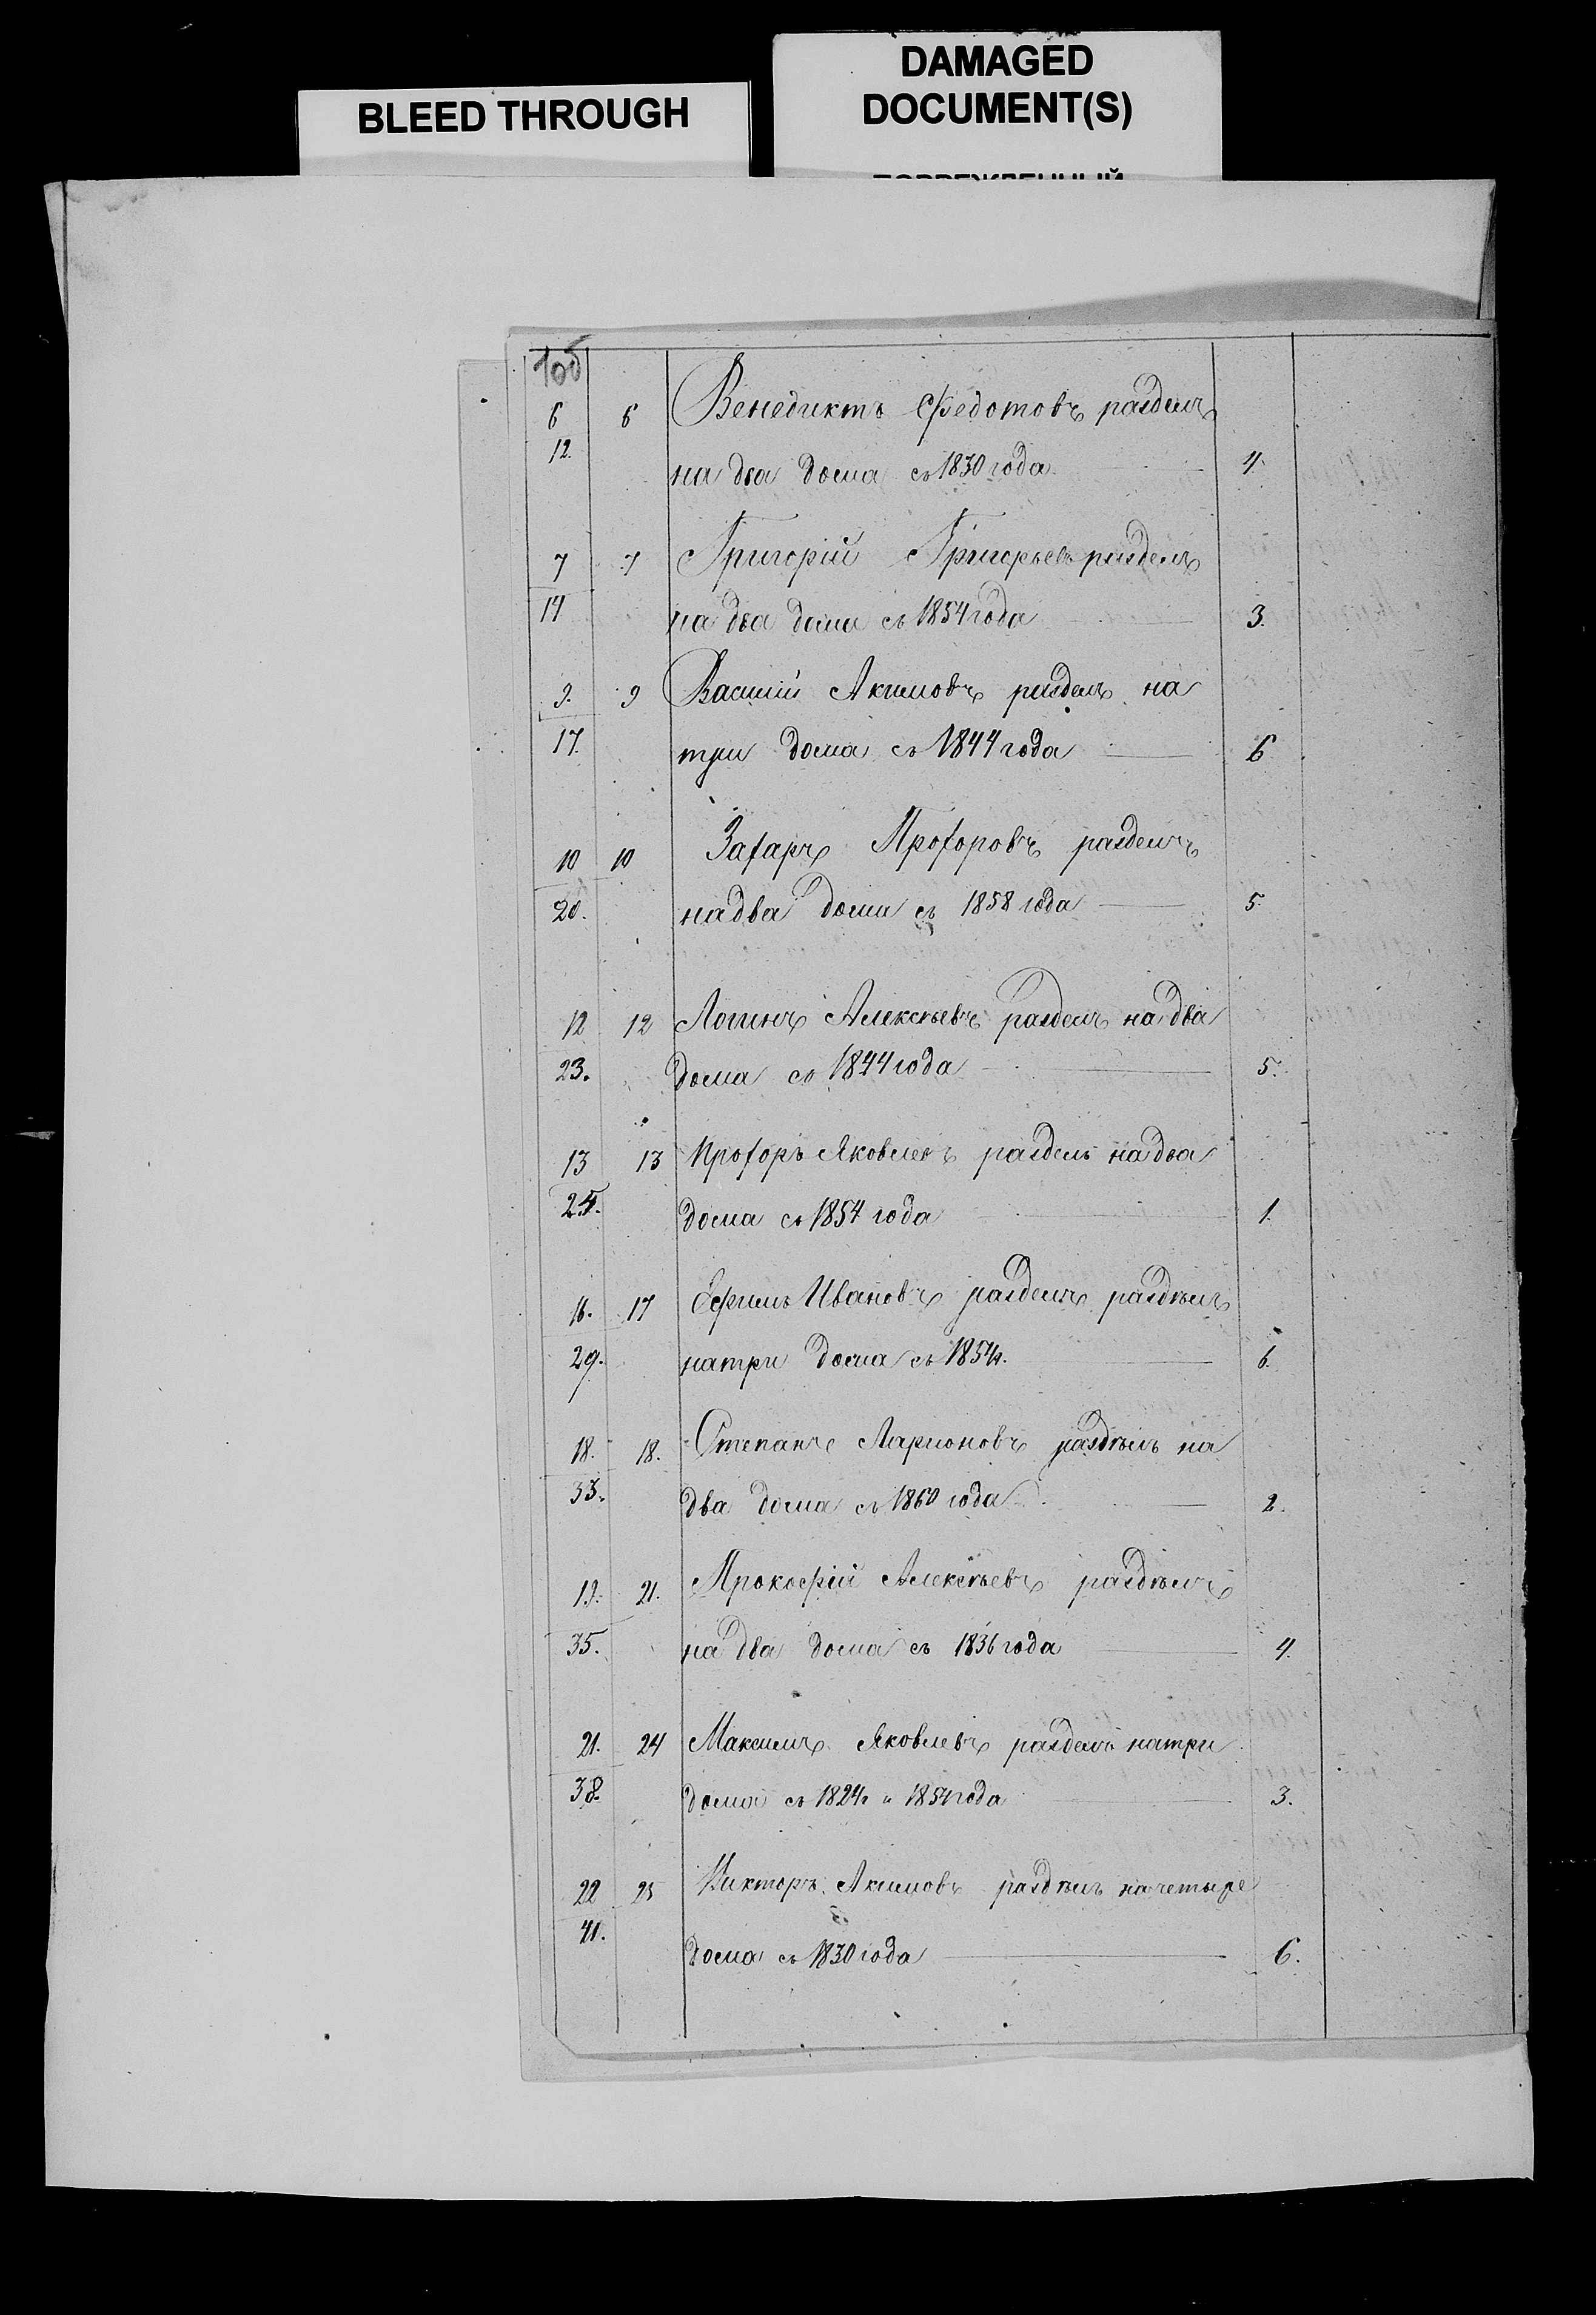 BLEED THROUGH
DAMAGED
DOCUMENT(S)
1об
6 6 Венедиктъ Федотовъ разделъ
12. на два дома съ 1830 года 4.
7 7 Григорій Григорьевъ разделъ
14 на два дома съ 1854 года 3.
9. 9 Василій Акимовъ разделъ на
17. три дома съ 1844 года 6
10 10 Захаръ Прохоровъ разделъ
20. на два дома съ 1858 года 5.
12 12 Логинъ Алексѣевъ разделъ на два
23. дома съ 1844 года 5.
13 13 Прохоръ Яковлевъ разделъ на два
25. дома съ 1854 года 1.
16. 17 Ефимъ Ивановъ разделъ раздѣлъ
29. на три дома съ 1854 г. 6.
18. 18. Степанъ Ларионовъ раздѣлъ на
33. два дома съ 1860 года 2.
19. 21. Прокофій Алексѣевъ раздѣлъ
35. на два дома съ 1836 года 4.
21. 24 Максимъ Яковлевъ разделъ на три
38. дома съ 1824 г и 1854 года 3.
22 25 Викторъ Акимовъ раздѣлъ на четыре
41. дома съ 1830 года 6.